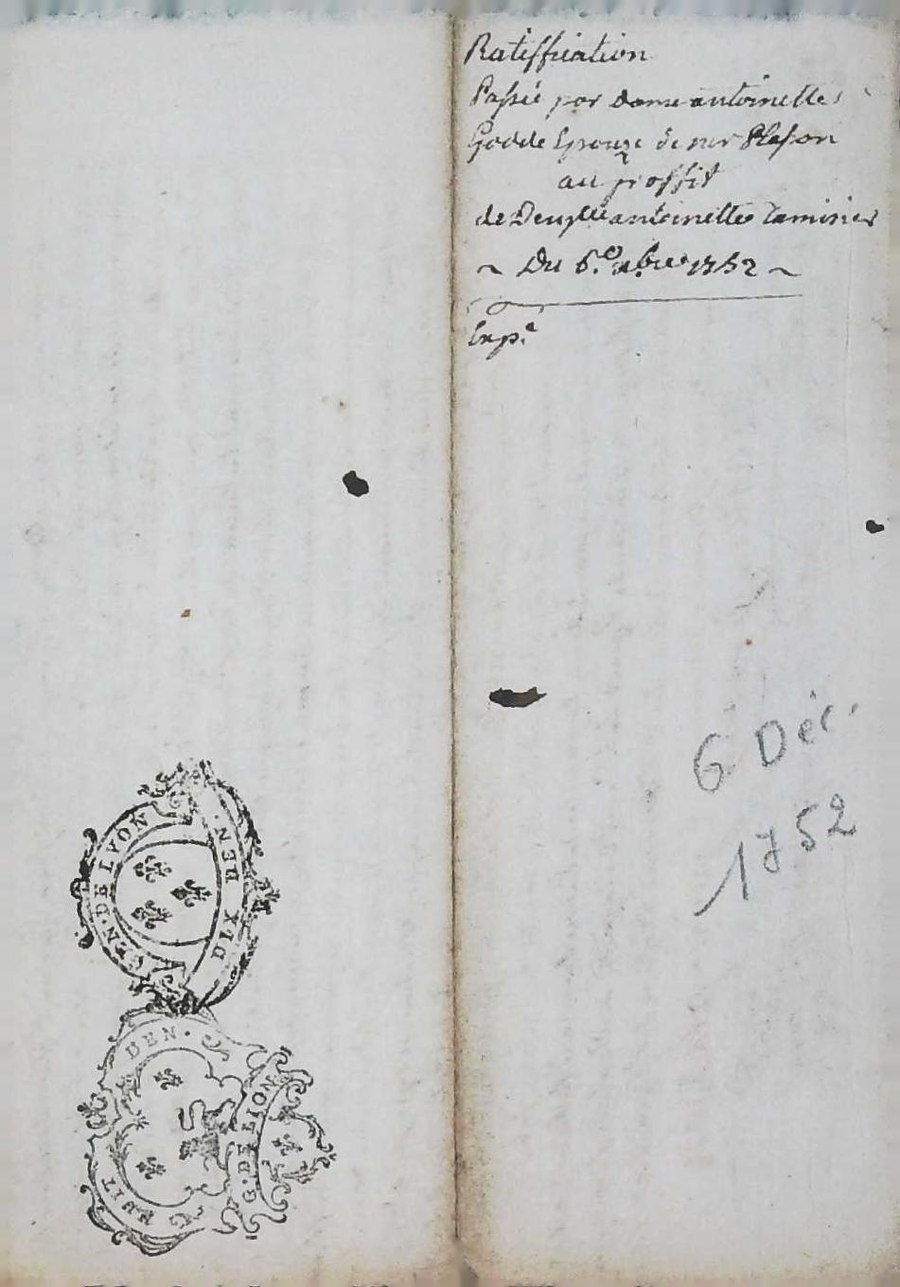 Ratiffication
Passée par dame antoinette
Godde Epouze de mr
au proffit
de Demlle antoinette Tamisier
~ Du 6.e xbre 1752 ~
Exp.e
6 Déc.
1752
GEN. DE LYON
DIX DEN.
HUIT DEN.
G. DE LION